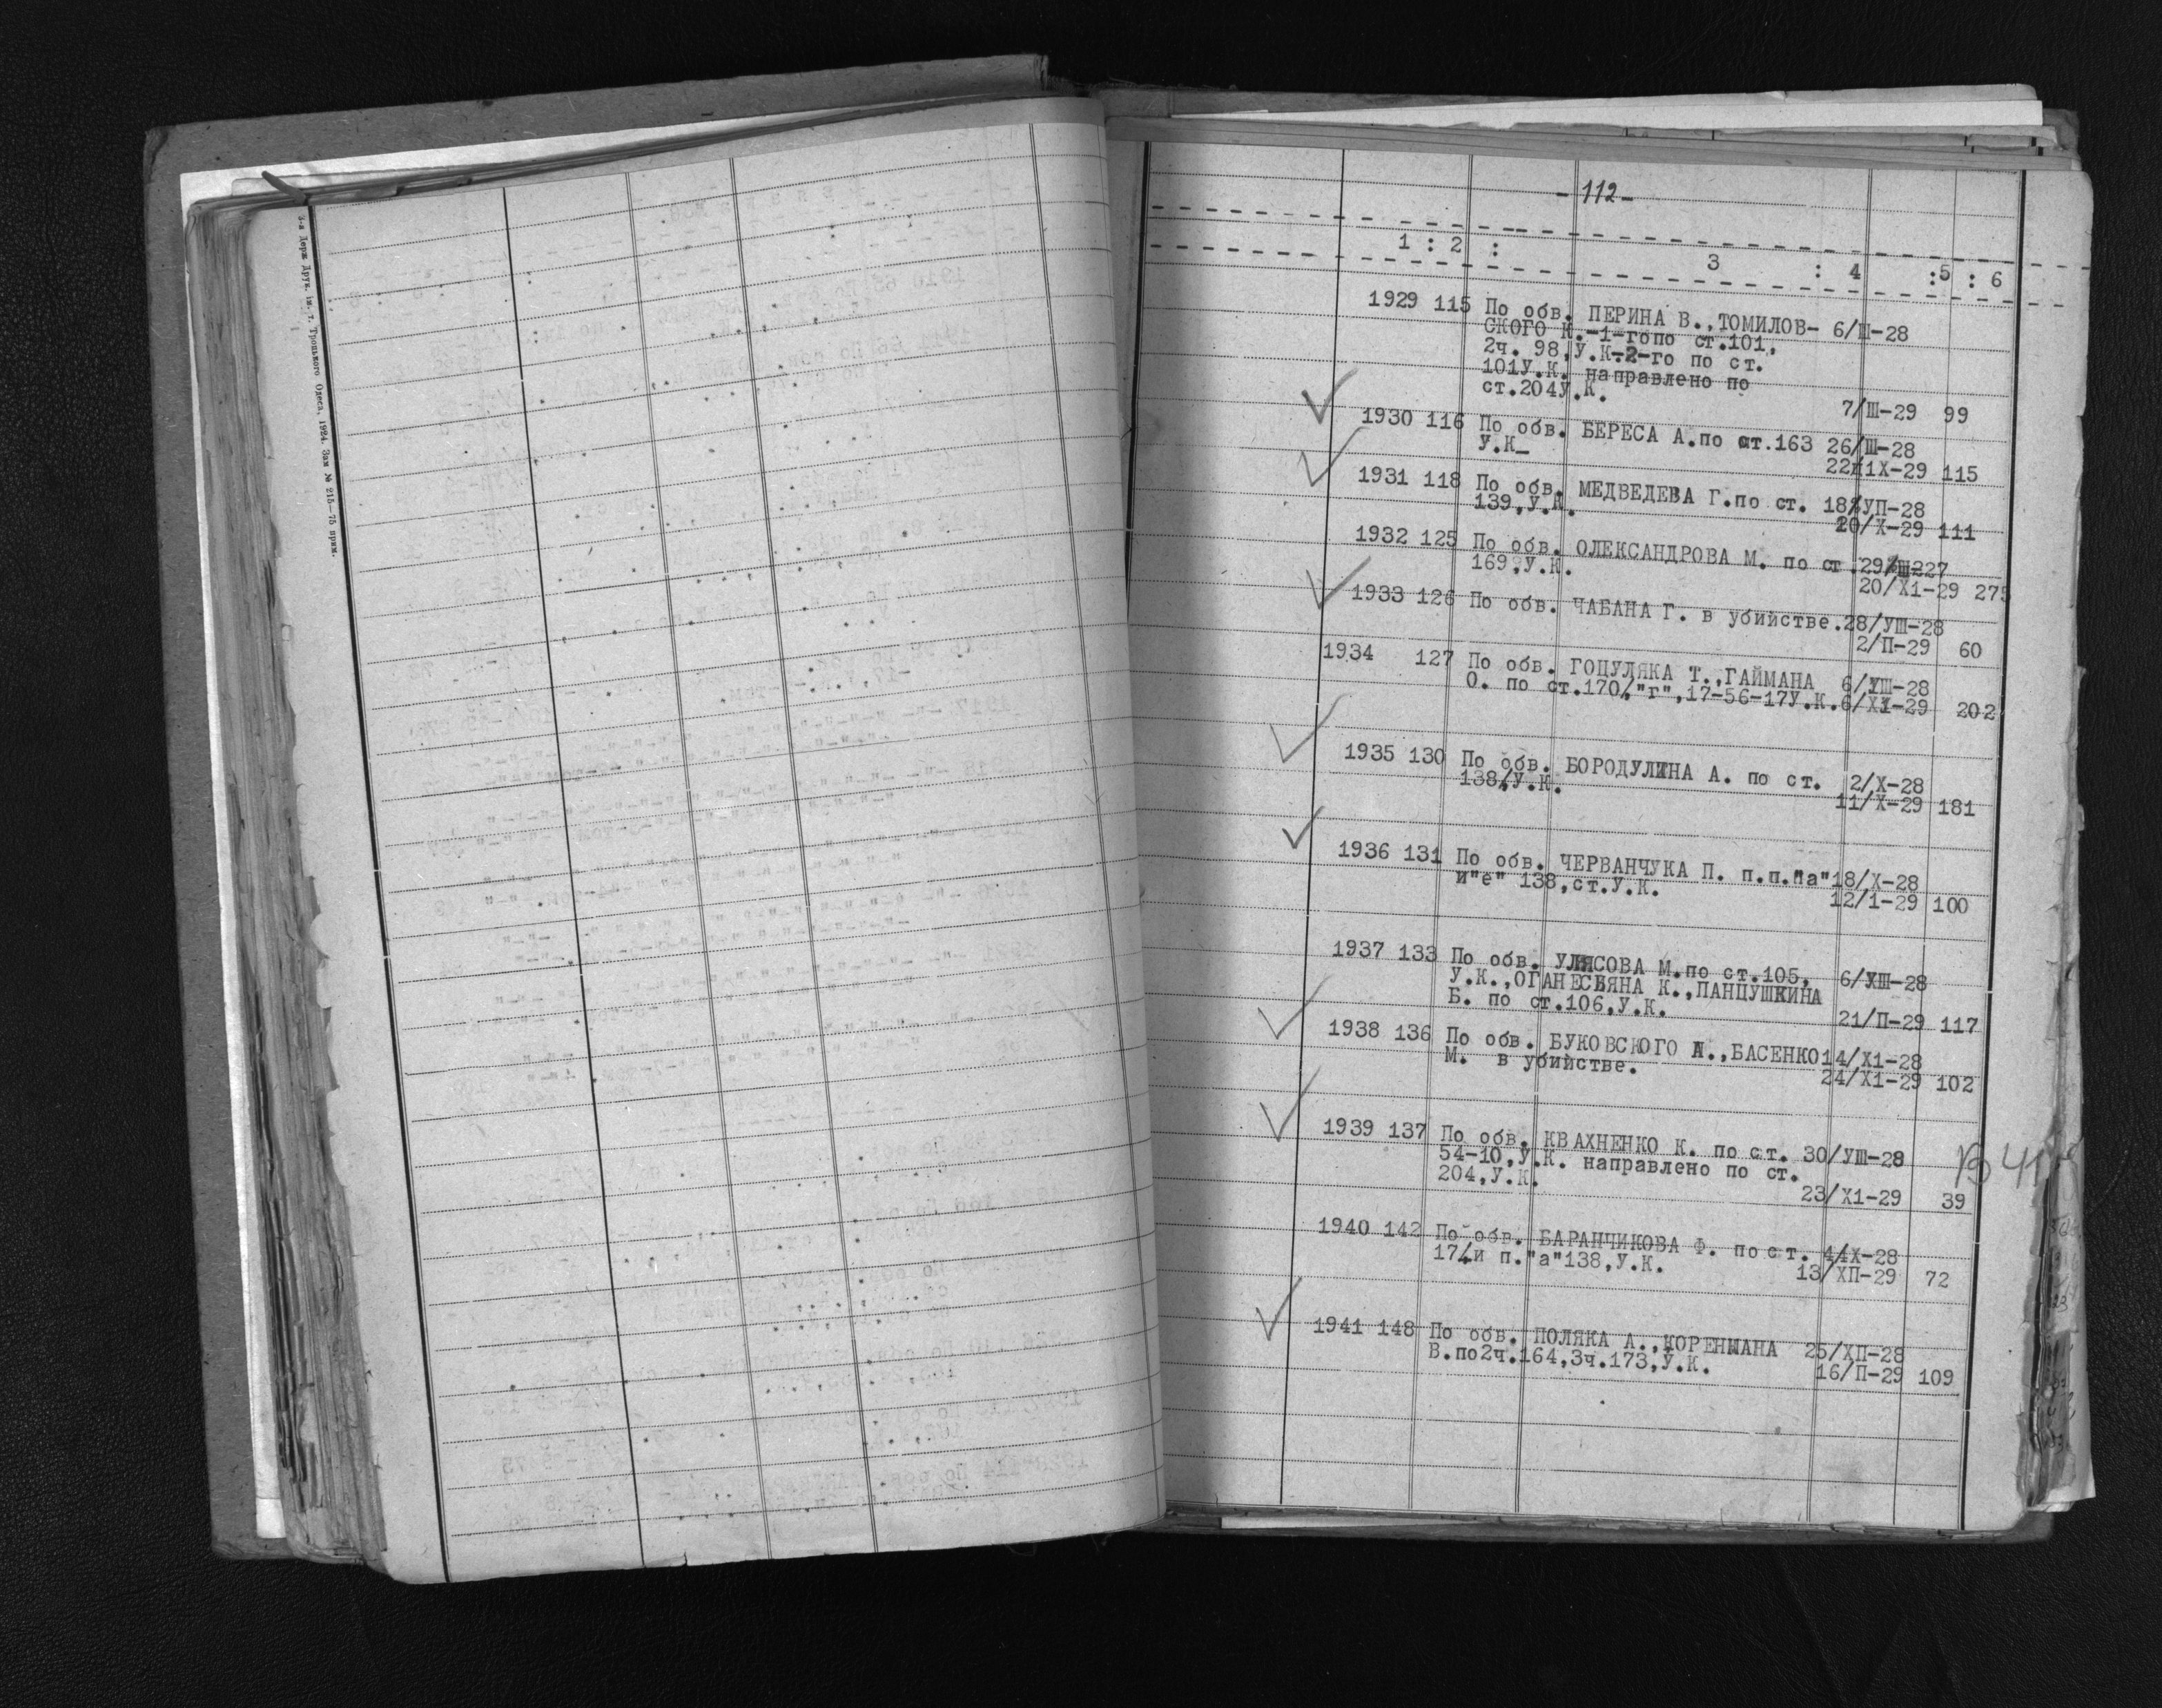 3-а Держ Друк. ім. т. Троцького Одеса. 1924. Зам № 215—75 прим.
- 112 -
1 : 2 : 3 : 4 :5 : 6
1929 115 По обв. ПЕРИНА В.,ТОМИЛОВ- 6/Ш-28
СКОГО К.-1-гопо ст.101,
2ч. 98,У.К-2-го по ст.
101У.К. направлено по
ст.204У.К.
7/Ш-29 99
1930 116 По обв. БЕРЕСА А.по ст.163 26/Ш-28
У.К_ 22/1Х-29 115
1931 118 По обв. МЕДВЕДЕВА Г.по ст. 18/УП-28
139,У.К. 20/Х-29 111
1932 125 По обв. ОЛЕКСАНДРОВА М. по ст
169,У.К. 20/Х1-29 275
1933 126 По обв. ЧАБАНА Г. в убийстве.28/УШ-28
2/П-29 60
1934 127 По обв. ГОЦУЛЯКА Т.,ГАЙМАНА 6/УШ-28
О. по ст.170,"г",17-56-17У.К.6/Х1-29 202
1935 130 По обв. БОРОДУЛИНА А. по ст. 2/Х-28
138,У.К. 11/Х-29 181
1936 131 По обв. ЧЕРВАНЧУКА П. п.п."а"18/Х-28
и"е" 138,ст.У.К. 12/1-29 100
1937 133 По обв. УЛЯСОВА М.по ст.105, 6/УШ-28
У.К.,ОГАНЕСЬЯНА К.,ПАНЦУШКИНА
Б. по ст.106,У.К. 21/П-29 117
1938 136 По обв. БУКОВСКОГО А.,БАСЕНКО14/Х1-28
М. в убийстве. 24/Х1-29 102
1939 137 По обв. КВАХНЕНКО К. по ст. 30/УШ-28
54-10,У.К. направлено по ст.
204,У.К. 23/Х1-29 39
1940 142 По обв. БАРАНЧИКОВА Ф. по ст. 4/1Х-28
17,и п."а"138,У.К. 13/ХП-29 72
1941 148 По обв. ПОЛЯКА А.,КОРЕНМАНА 25/ХП-28
В.по2ч.164,3ч.173,У.К. 16/П-29 109